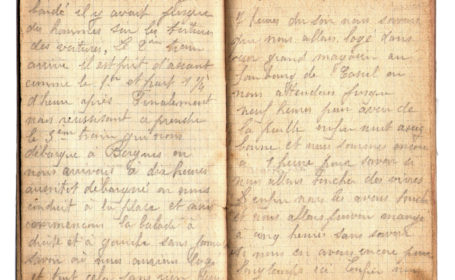 bondé il y avait jusque
des hommes sur les toitures
des voitures. Le 2ème train
arrive il est prit d'assaut
comme le 1er et part 1/4
d'heure après. Finalement
nous réussissons à prendre
le 3ème train qui nous
débarque à Bergues où
nous arrivons à dix heures
aussitôt débarqué on nous
conduit à la place et ainsi
commençons la balade à
droite et à gauche sans
savoir où nous aurions logé
et tout cela sans rien
heures du soir nous savons
que nous allons logé dans
un grand magasin au
faubourg de Cassel où
nous attendons jusque
neuf heures pour avoir de
la paille enfin nuit assez
bonne et nous sommes encore
à 1 heure pour savoir si
nous allons toucher des vivres
enfin nous les avons
et nous allons pouvoir manger
à cinq heures sans savoir
si nous en avons encore pour
longtemps ici